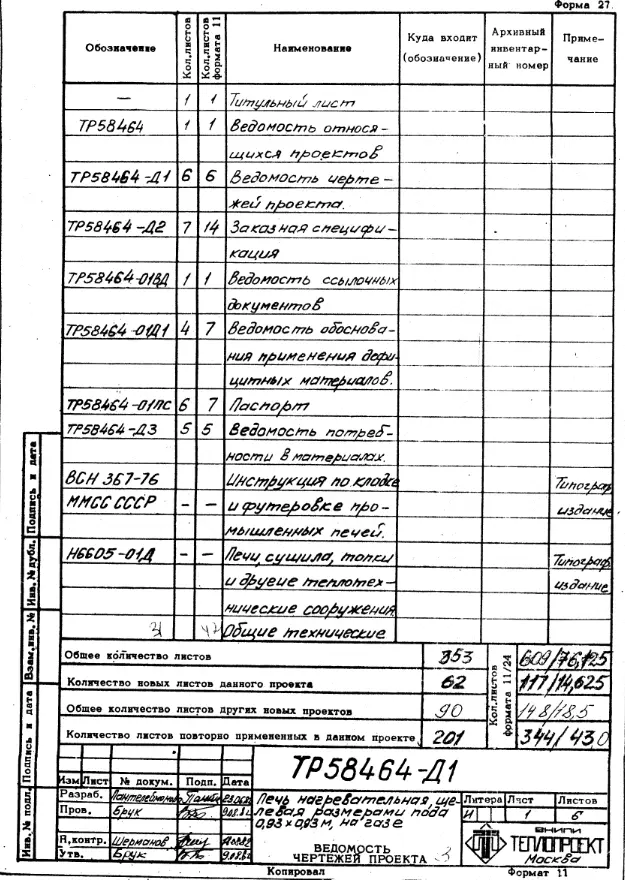 Форма 27
Обозначение Кол.листов Кол.листов формата 11 Наименование Куда входит (обозначение) Архивный инвентар- ный номер Приме- чание
— 1 1 Титульный лист
ТР58464 1 1 Ведомость относя-
щихся проектов
ТР58464-Д1 6 6 Ведомость черте-
жей проекта.
ТР58464-Д2 7 14 Заказная специфи-
кация
ТР58464-01ВД 1 1 Ведомость ссылочных
документов
ТР58464-01Д1 4 7 Ведомость обоснова-
ния применения дефи-
цитных материалов.
ТР58464-01ПС 6 7 Паспорт
ТР58464-Д3 5 5 Ведомость потреб-
ности в материалах.
ВСН 367-76 Инструкция по кладке Типограф.
ММСС СССР - - и футеровке про- издание
мышленных печей.
Н6605-01Д - - Печи, сушила, топки Типограф.
и другие теплотех- издание
нические сооружения
31 42 Общие технические
Общее количество листов 353 609/76,125
Количество новых листов данного проекта 62 117/14,625
Общее количество листов других новых проектов 90 148/18,5
Количество листов повторно примененных в данном проекте 201 344/430
Кол.листов формата 11/24
Подпись и дата
Инв.№ дубл.
Взам.инв.№
Подпись и дата
Инв.№ подл.
ТР58464-Д1
Изм Лист № докум. Подп. Дата
Разраб. Пантелеймонова
Пров. Брук
Н.контр. Шерманов
Утв. Брук
Печь нагревательная, ще-
левая размерами пода
0,93 х 0,93 м, на газе
ВЕДОМОСТЬ
ЧЕРТЕЖЕЙ ПРОЕКТА 3
Литера Лист Листов
И 1 6
ВНИПИ
ТЕПЛОПРОЕКТ
Москва
Копировал Формат 11